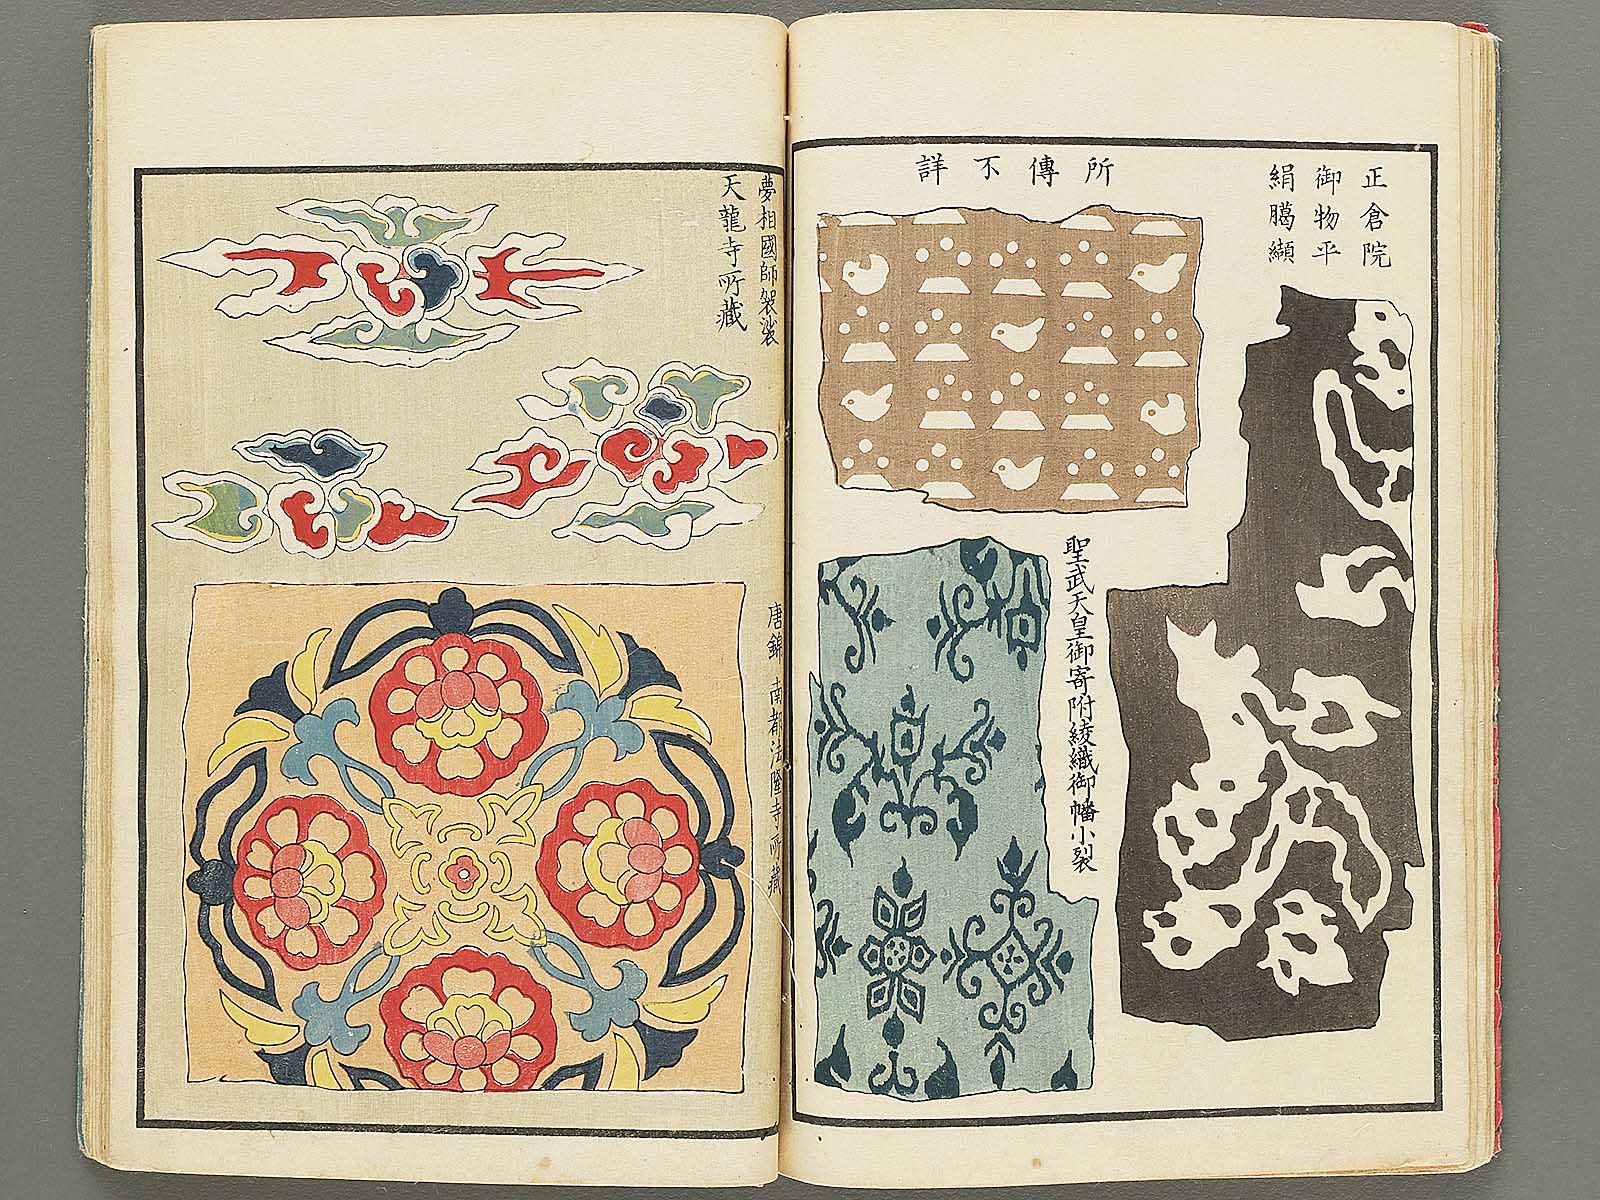 正倉院
御物平
絹﨟纈
所傳不詳
聖武天皇御寄附綾織御幡小裂
夢相國師袈裟
天龍寺所藏
唐錦 南都法隆寺所藏